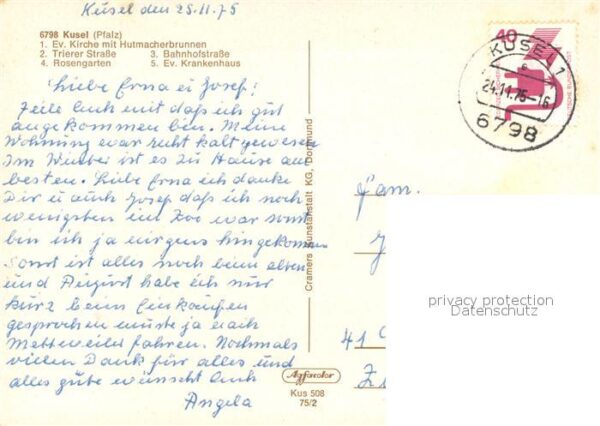 Kusel den 25.11.75
6798 Kusel (Pfalz)
1. Ev. Kirche mit Hutmacherbrunnen
2. Trierer Straße 3. Bahnhofstraße
4. Rosengarten 5. Ev. Krankenhaus
Liebe Erna u Josef!
Teile Euch mit daß ich gut
angekommen bin. Meine
Wohnung war recht kalt gewesen
Im Winter ist es zu Hause am
besten. Liebe Erna ich danke
Dir u auch Josef daß ich noch
wenigsten im Zoo war sonst
bin ich ja nirgens hingekommen
Sonst ist alles noch beim alten
und August habe ich nur
kurz beim Einkaufen
gesprochen mußte ja nach
Mettweiler fahren. Nochmals
vielen Dank für alles und
alles gute wünscht Euch
Angela
Cramers Kunstanstalt KG, Dortmund
Agfacolor
Kus 508
75/2
40
DEUTSCHE BUNDESPOST
KUSEL 1
24.11.75-16
6798
Fam.
41
privacy protection
Datenschutz